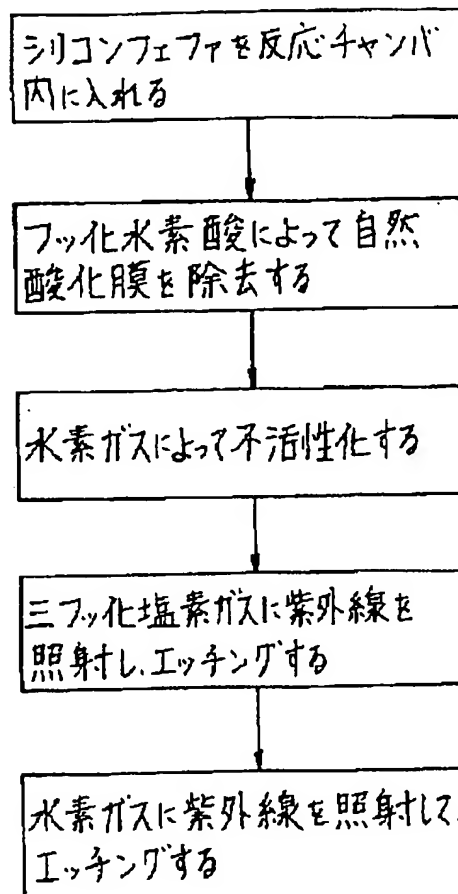 シリコンフェファを反応チャンバ
内に入れる
フッ化水素酸によって自然
酸化膜を除去する
水素ガスによって不活性化する
三フッ化塩素ガスに紫外線を
照射し、エッチングする
水素ガスに紫外線を照射して、
エッチングする